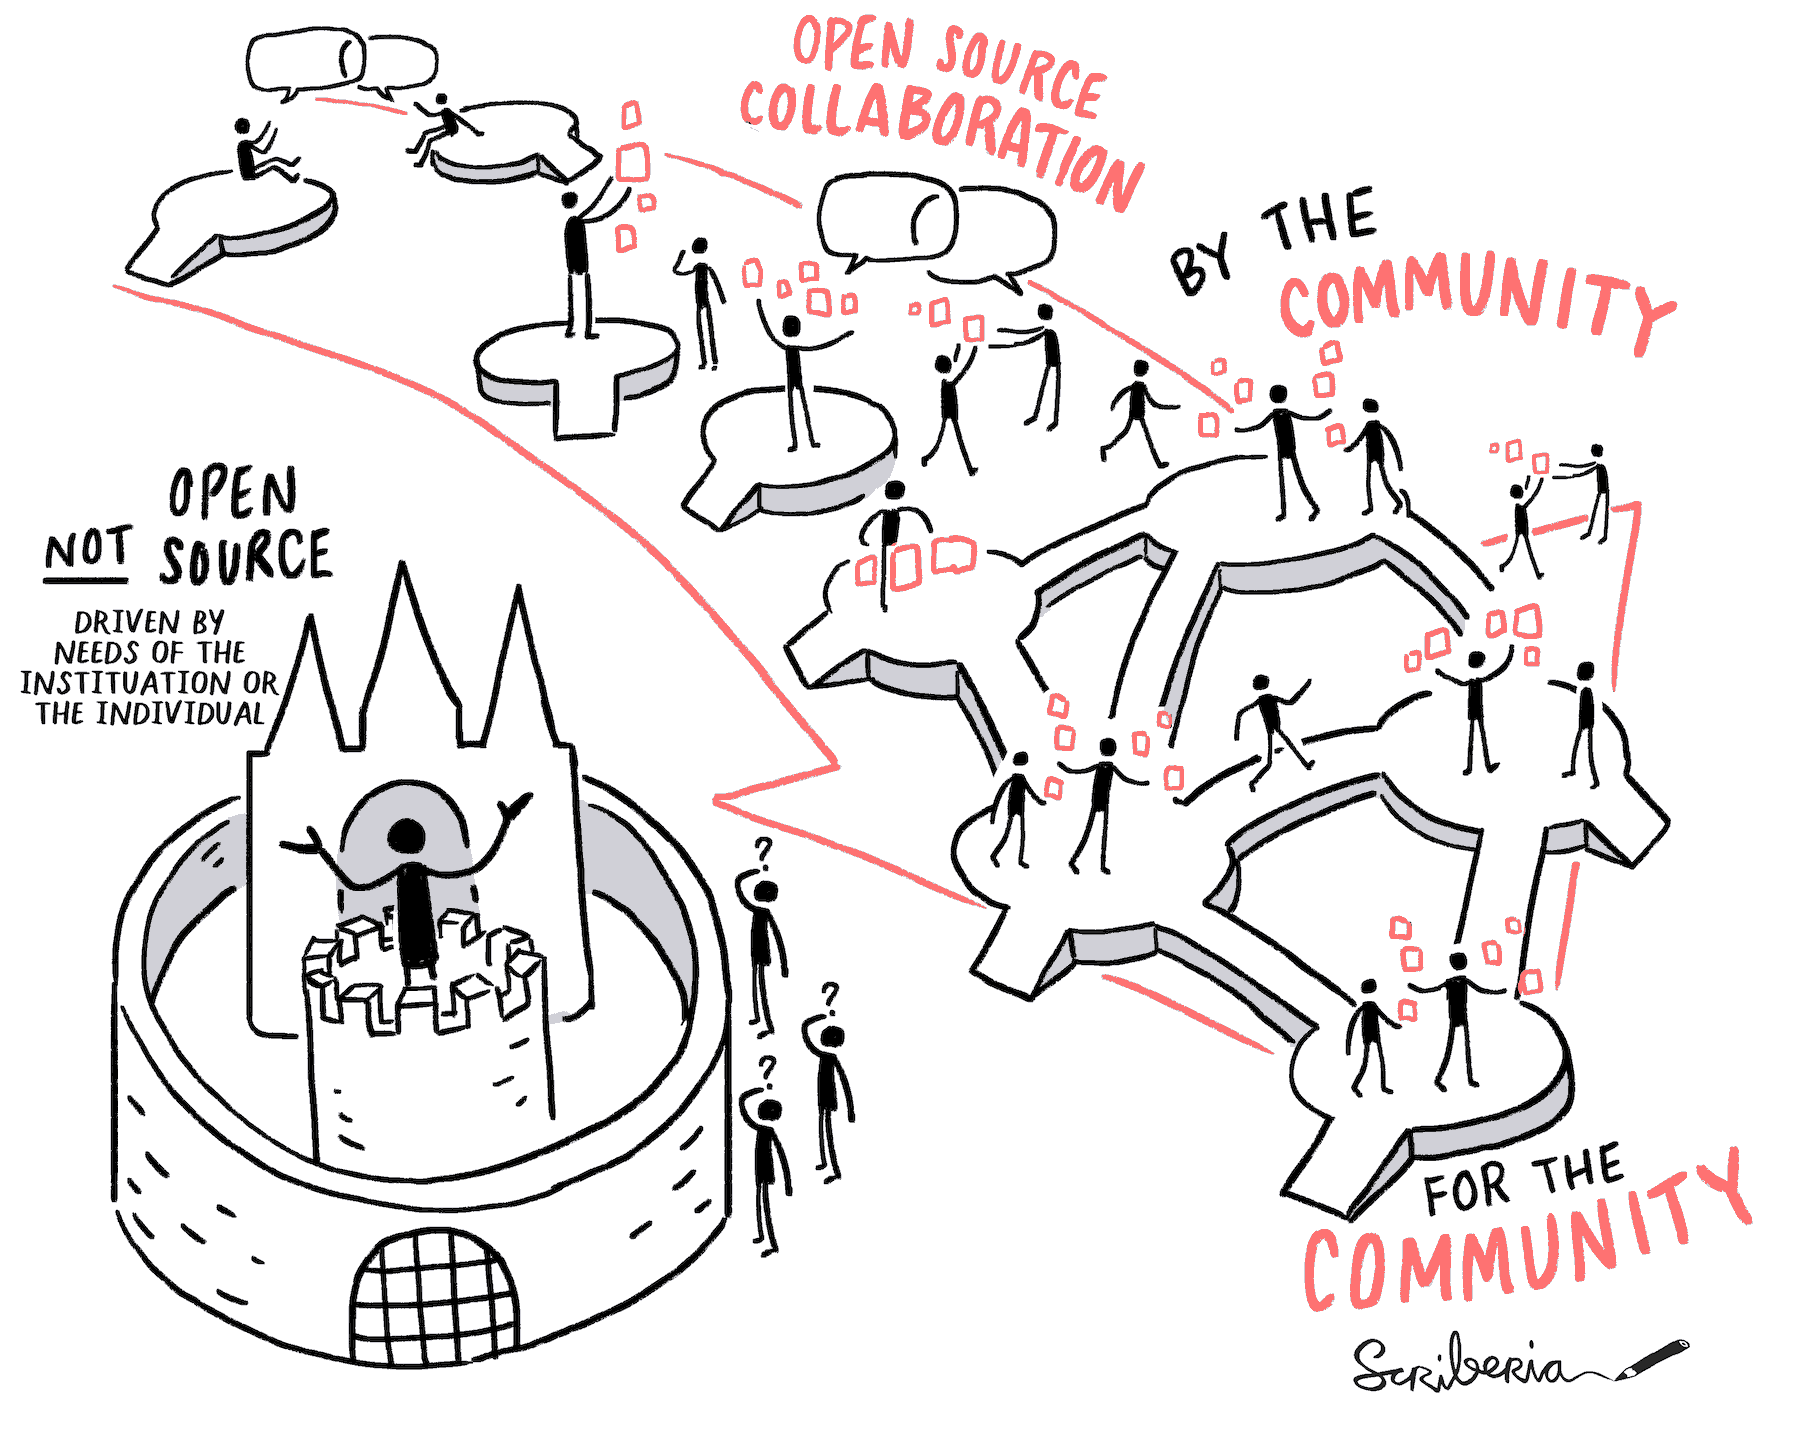 OPEN SOURCE
COLLABORATION
BY THE
COMMUNITY
NOT OPEN
SOURCE
DRIVEN BY
NEEDS OF THE
INSTITUATION OR
THE INDIVIDUAL
?
?
?
FOR THE
COMMUNITY
Scriberia